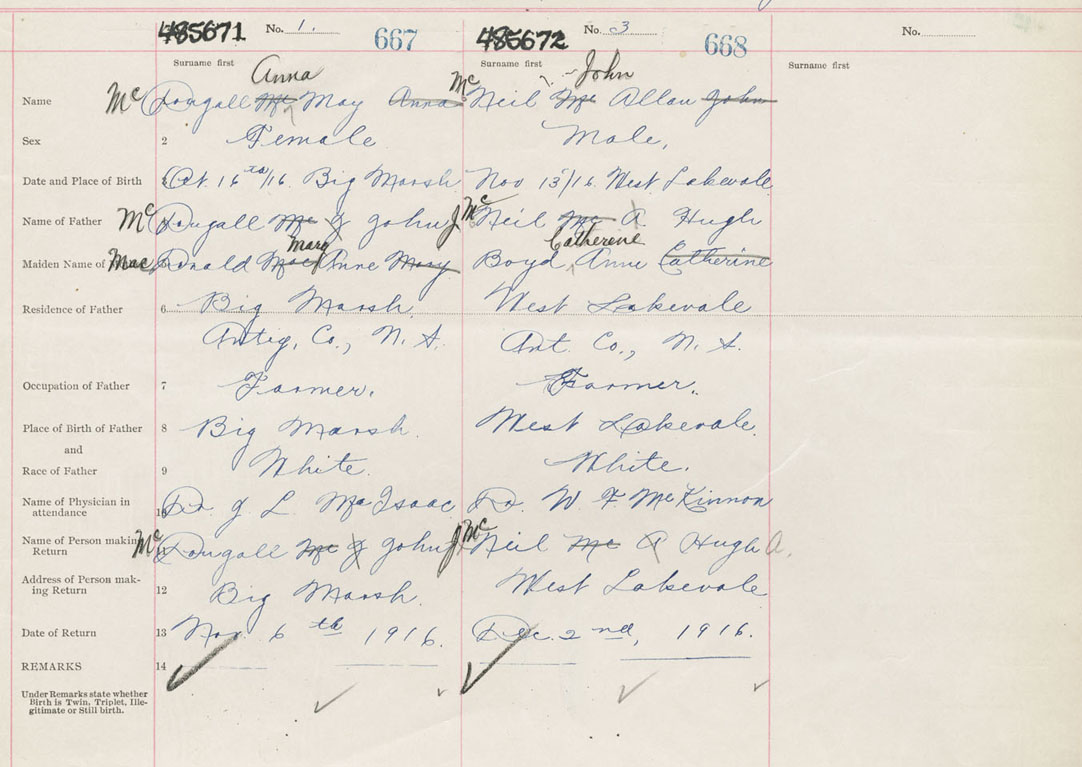 485671 No. 1. 667 485672 No. 3 668 No.
Surname first Surname first Surname first
Anna John
Name Mc Dougall Mc May Anna Mc Neil Mc Allan John
Sex 2 Female Male.
Date and Place of Birth 3 Oct. 16th/16. Big Marsh Nov 13/16. West Lakevale
Name of Father Mc Dougall Mc J John J Mc Neil Mc A Hugh
Mary Catherene
Maiden Name of Mac Donald Mac Anne Mary Boyd Anne Catherine
Residence of Father 6 Big Marsh West Lakevale
Antig. Co., N. S. Ant. Co., N. S.
Occupation of Father 7 Farmer. Farmer.
Place of Birth of Father 8 Big Marsh. West Lakevale
and
Race of Father 9 White. White.
Name of Physician in
attendance 10 Dr J. L. McIsaac Dr. W. F McKinnon
Name of Person making Mc Dougall Mc J John J Mc Neil Mc A Hugh A.
Return
Address of Person mak-
ing Return 12 Big Marsh. West Lakevale
Date of Return 13 Nov. 6th 1916. Dec. 2nd, 1916.
REMARKS 14
Under Remarks state whether
Birth is Twin, Triplet, Ille-
gitimate or Still birth.